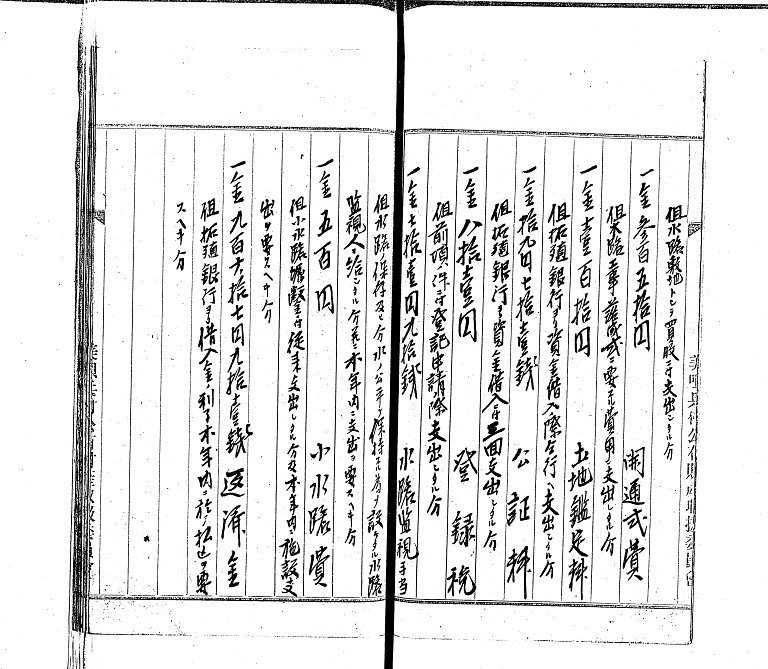 但水路敷地トシテ買収ニ付支出シタル分
一金参百五拾円 開通式費
但水路工事落成式ニ要スル費用ニ支出シタル分
一金壹百拾円 土地鑑定料
但拓殖銀行ヨリ資金借入ノ際全行ヘ支出シタル分
一金拾九円七拾壹銭 公証料
但拓殖銀行ヨリ資金借入ニ付三回支出シタル分
一金八拾壹円 登録税
但前項ノ件ニ付登記申請ノ際支出シタル分
一金七拾壹円九拾銭 水路監視手当
但水路ノ保存及ヒ分水ノ公平ヲ保持スル為メ設ケタル水路
監視人ニ給シタル分並ニ本年内ニ支出ヲ要スヘキ分
一金五百円 小水路費
但小水路堀鑿ニ付従来支出シタル分及本年内ニ施設支
出ヲ要スヘキ分
一金九百六拾七円九拾壹銭 返済金
但拓殖銀行ヨリ借入金ノ利子本年内ニ於テ払込ヲ要
スヘキ分